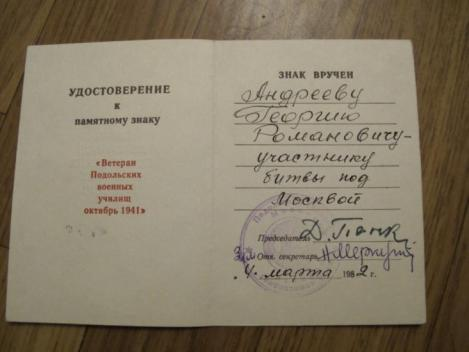 УДОСТОВЕРЕНИЕ
к
памятному знаку
«Ветеран
Подольских
военных
училищ
октябрь 1941»
ЗНАК ВРУЧЕН
Андрееву
Георгию
Романовичу-
участнику
битвы под
Москвой
Председатель
Отв. секретарь
4 марта 1982 г.